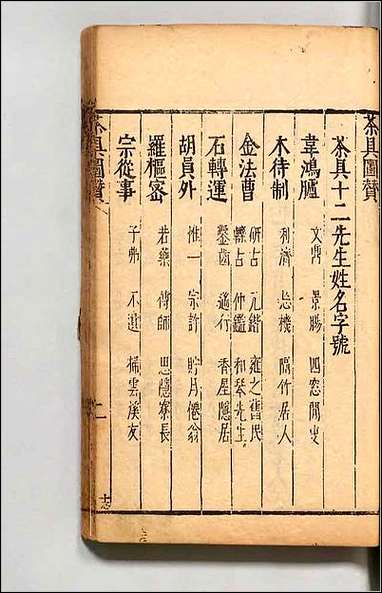 茶具圖贊
茶具十二先生姓名字號
韋鴻臚 文鼎 景暘 四窓閒叟
木待制 利濟 忘機 隔竹居人
金法曹 研古 元鍇 雍之舊民
轢古 仲鑑 和琴先生
石轉運 鑿齒 遄行 香屋隱居
胡員外 惟一 宗許 貯月僊翁
羅樞密 若藥 傳師 思隱寮長
宗從事 子弗 不遺 掃雲溪友
茶具圖贊